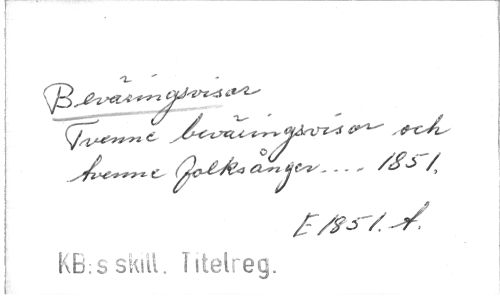 Beväringsvisor
Tvenne beväringsvisor och
tvenne folksånger.... 1851.
E 1851. A.
KB:s skill. Titelreg.